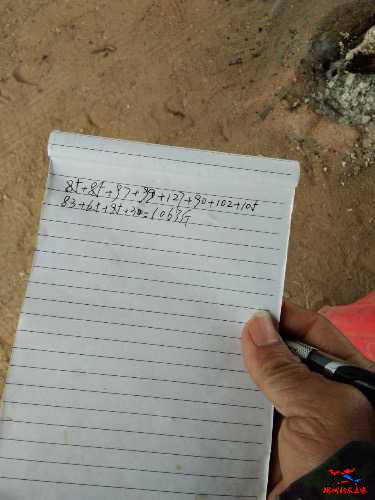 85+85+97+99+127+90+102+105
83+65+95+30=1063斤